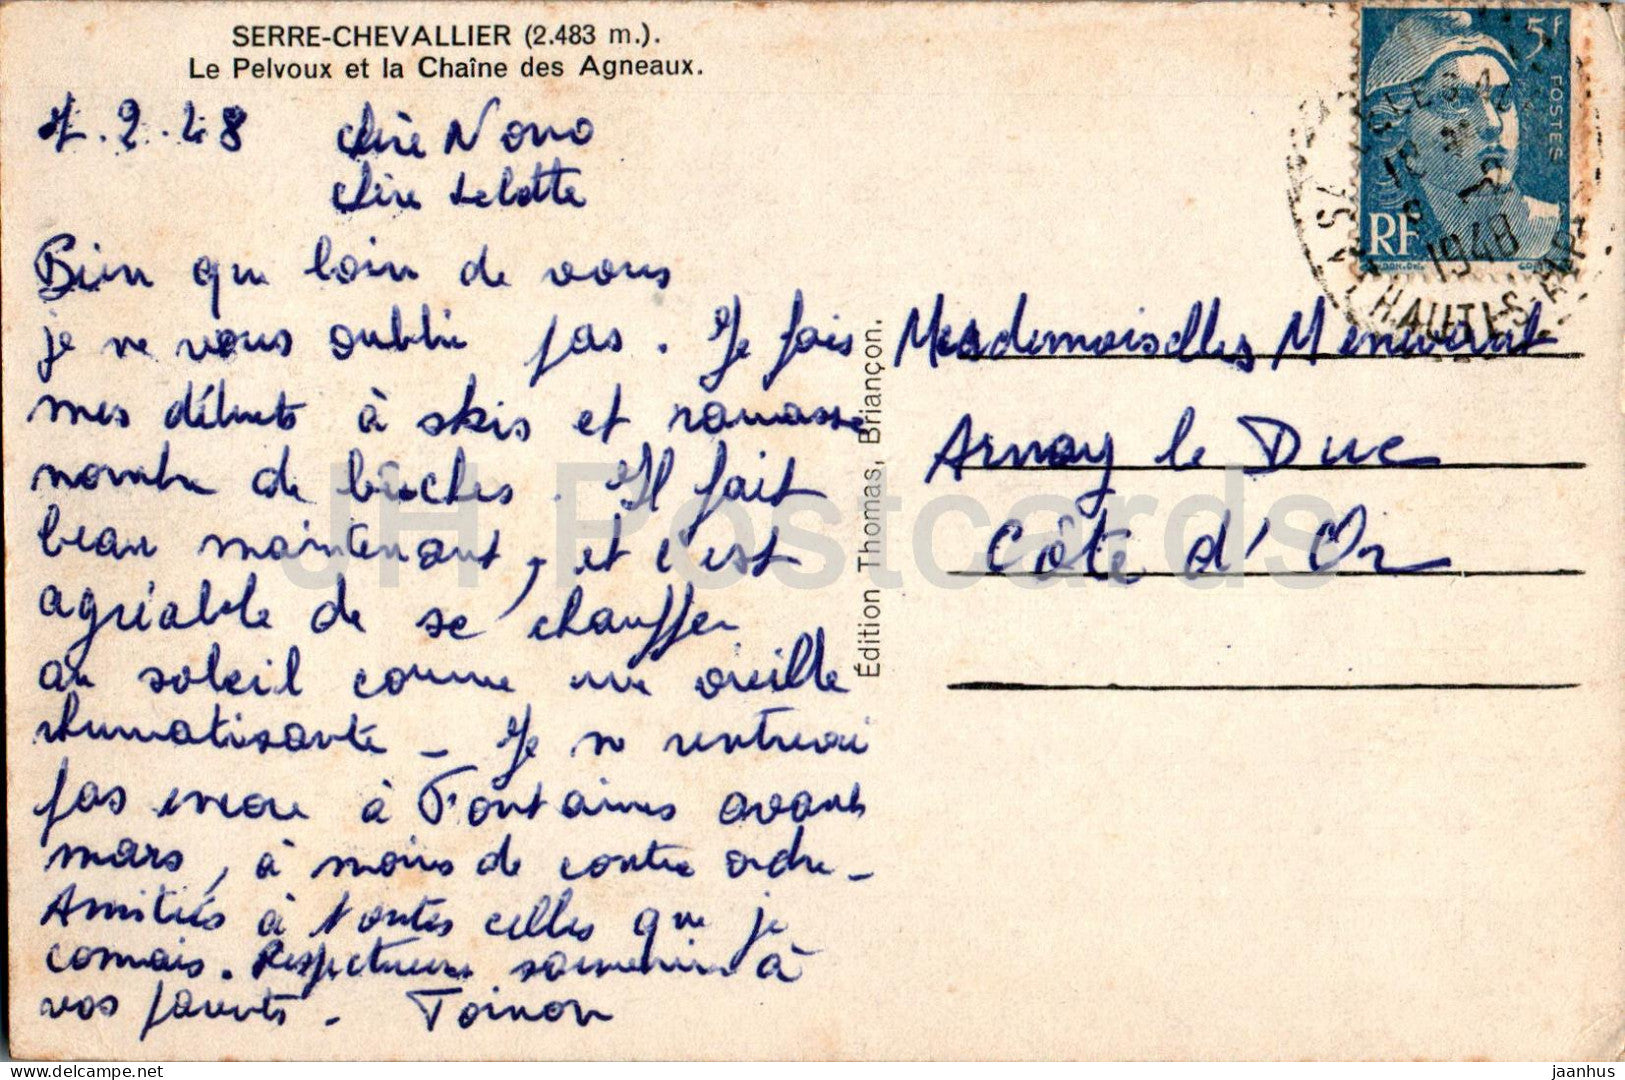 SERRE-CHEVALLIER (2.483 m.).
Le Pelvoux et la Chaîne des Agneaux.
7.2.48 chère Nono
chère Lolotte
Bien que loin de vous
je ne vous oublie pas. Je fais
mes débuts à skis et ramasse
nombre de bûches. Il fait
beau maintenant, et c'est
agréable de se chauffer
au soleil comme une oreille
rhumatisante - Je ne rentrerai
pas encore à Fontaines avant
mars, à moins de contre ordre -
Amitiés à toutes celles que je
connais. Respectueux souvenirs à
vos parents - Toinon
Édition Thomas, Briançon.
5f
POSTES
RF
1948
HAUTES-ALPES
Mesdemoiselles
Arnay le Duc
Côte d'Or
JH Postcards
delcampe.net
jaanhus